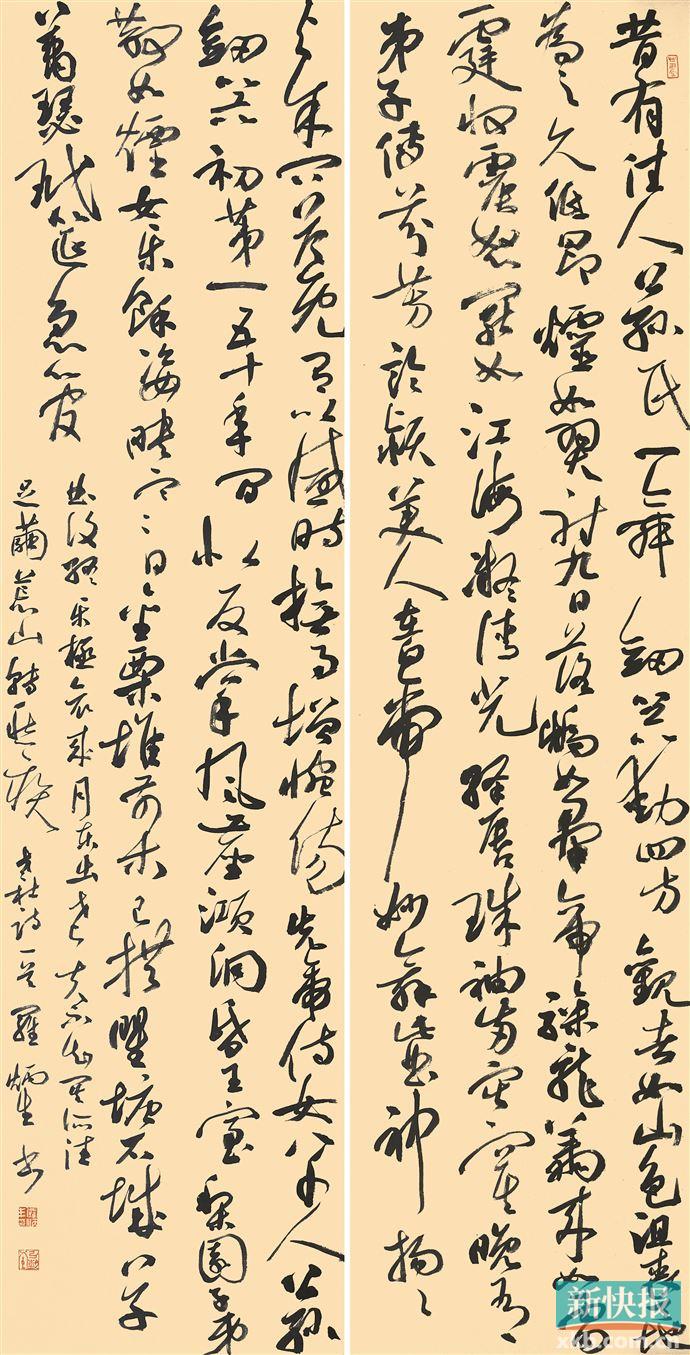 昔有佳人公孫氏一舞劍器動四方觀者如山色沮喪天地
為之久低昂㸌如羿射九日落矯如羣帝驂龍翔來如雷
霆收震怒罷如江海凝清光絳唇珠袖兩寂寞晚有
弟子傳芬芳臨潁美人在白帝妙舞此曲神揚〻
與余問答既有以感時撫事增惋傷先帝侍女八千人公孫
劍器初第一五十年間似反掌風塵澒洞昏王室梨園子弟
散如煙女樂餘姿映寒日金粟堆前木已拱瞿塘石城草
蕭瑟玳筵急管
曲復終樂極哀來月東出老夫不知其所往
足繭荒山轉愁疾 老杜詩一首 羅炳生書
新快报
xkb.com.cn